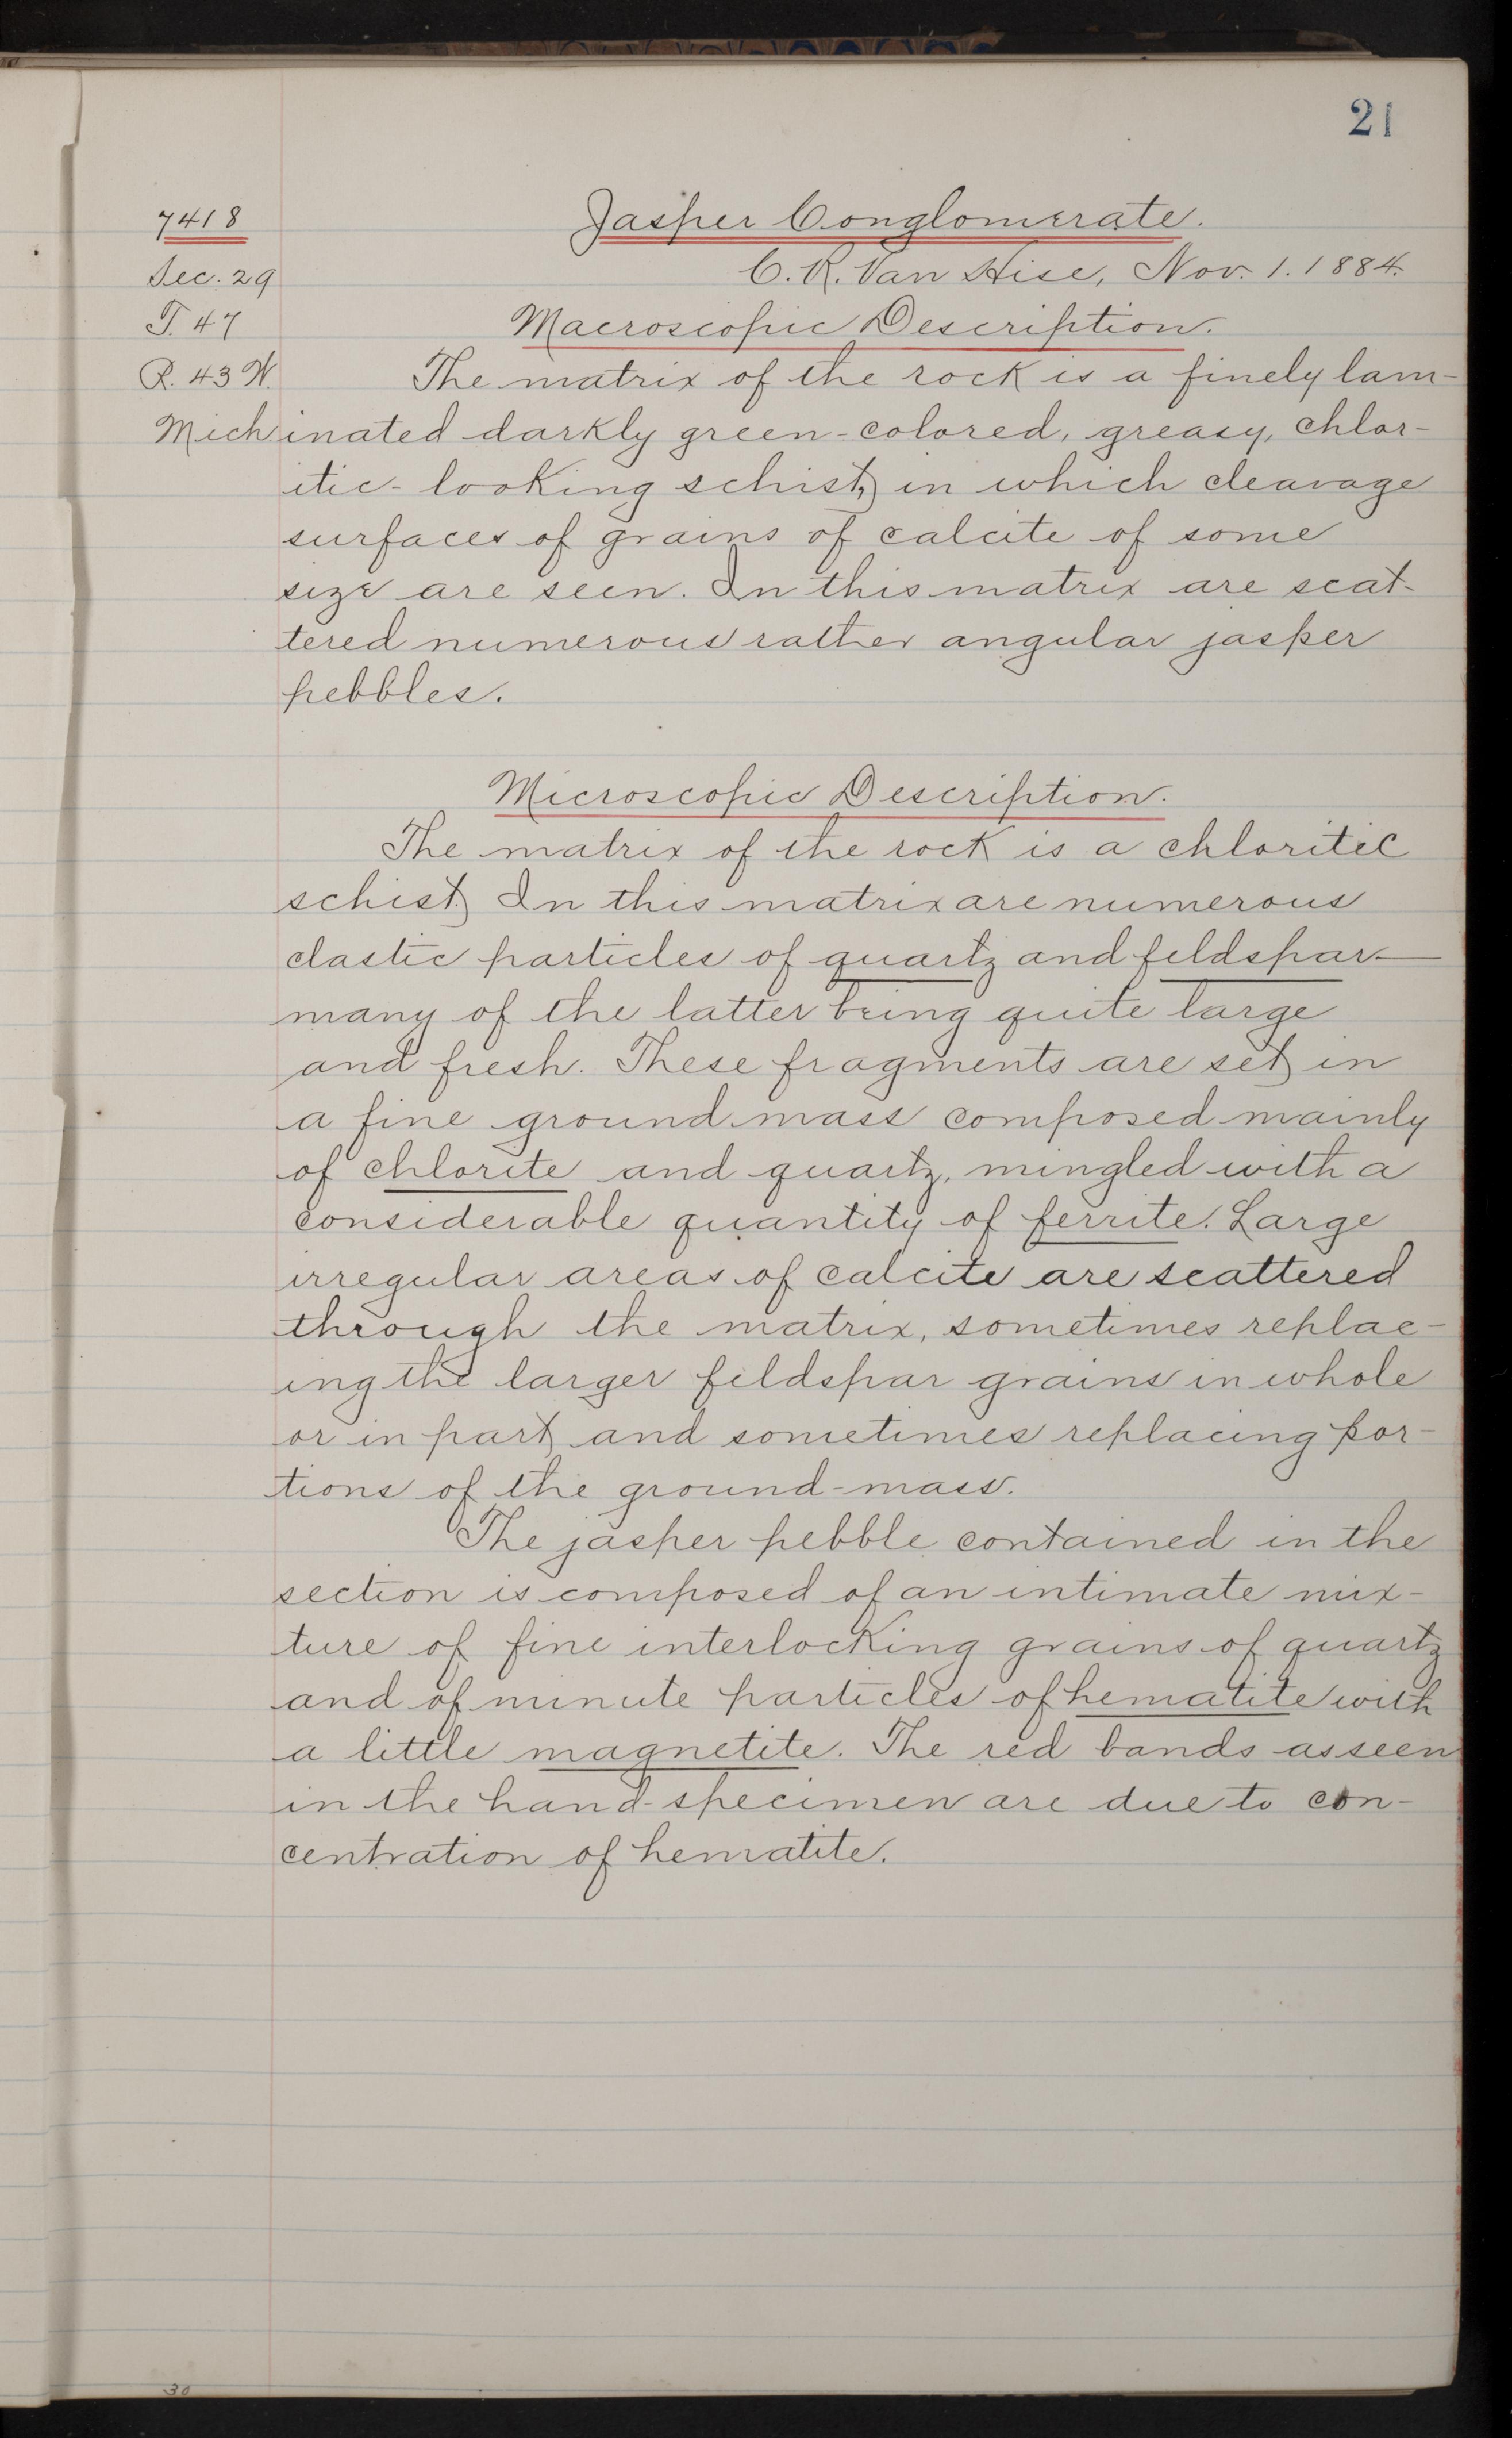 21
7418
Jasper Conglomerate.
Sec. 29
C. R. Van Hise, Nov. 1. 1884.
T. 47
Macroscopic Description.
R. 43 W.
The matrix of the rock is a finely lam-
Mich
inated darkly green-colored, greasy, chlor-
itic-looking schist, in which cleavage
surfaces of grains of calcite of some
size are seen. In this matrix are scat-
tered numerous rather angular jasper
pebbles.
Microscopic Description.
The matrix of the rock is a chloritic
schist. In this matrix are numerous
clastic particles of quartz and feldspar—
many of the latter being quite large
and fresh. These fragments are set in
a fine ground mass composed mainly
of chlorite and quartz, mingled with a
considerable quantity of ferrite. Large
irregular areas of calcite are scattered
through the matrix, sometimes replac-
ing the larger feldspar grains in whole
or in part and sometimes replacing por-
tions of the ground-mass.
The jasper pebble contained in the
section is composed of an intimate mix-
ture of fine interlocking grains of quartz
and of minute particles of hematite with
a little magnetite. The red bands as seen
in the hand-specimen are due to con-
centration of hematite.
30